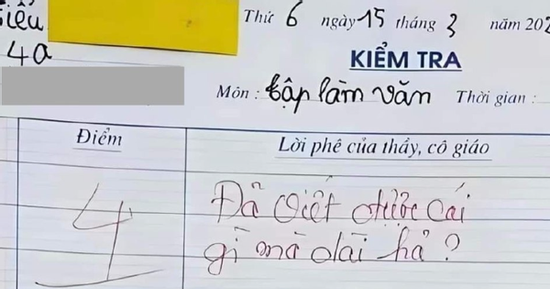 Tiểu
Thứ 6 ngày 15 tháng 3 năm 202
4a
KIỂM TRA
Môn: tập làm văn Thời gian:
Điểm
Lời phê của thầy, cô giáo
4
Đã viết được cái
gì mà dài hả?